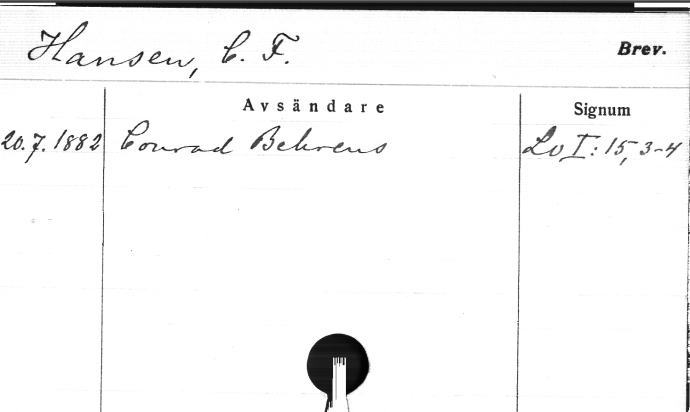 Hansen, C. F. Brev.
Avsändare Signum
20.7.1882 Conrad Behrens Lo I: 15, 3-4